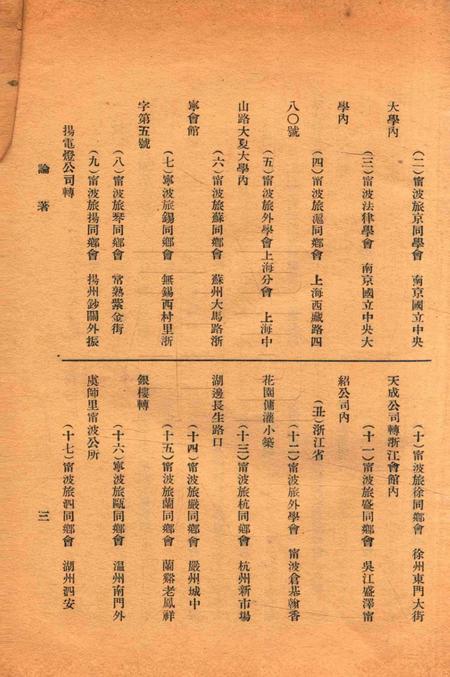 (二)甯波旅京同學會　南京國立中央
大學內
(三)甯波法律學會　南京國立中央大
學內
(四)甯波旅滬同鄉會　上海西藏路四
八〇號
(五)甯波旅外學會上海分會　上海中
山路大夏大學內
(六)甯波旅蘇同鄉會　蘇州大馬路浙
寧會館
(七)寧波旅錫同鄉會　無錫西村里浙
字第五號
(八)甯波旅琴同鄉會　常熟紫金街
(九)甯波旅揚同鄉會　揚州鈔關外振
揚電燈公司轉
(十)甯波旅徐同鄉會　徐州東門大街
天成公司轉浙江會館內
(十一)甯波旅盛同鄉會　吳江盛澤甯
紹公司內
(丑)浙江省
(十二)甯波旅外學會　甯波倉基翰香
花園傭灌小築
(十三)甯波旅杭同鄉會　杭州新市場
湖邊長生路口
(十四)甯波旅嚴同鄉會　嚴州城中
(十五)甯波旅蘭同鄉會　蘭谿老鳳祥
銀樓轉
(十六)寧波旅甌同鄉會　溫州南門外
虞師里甯波公所
(十七)甯波旅泗同鄉會　湖州泗安
論著
三